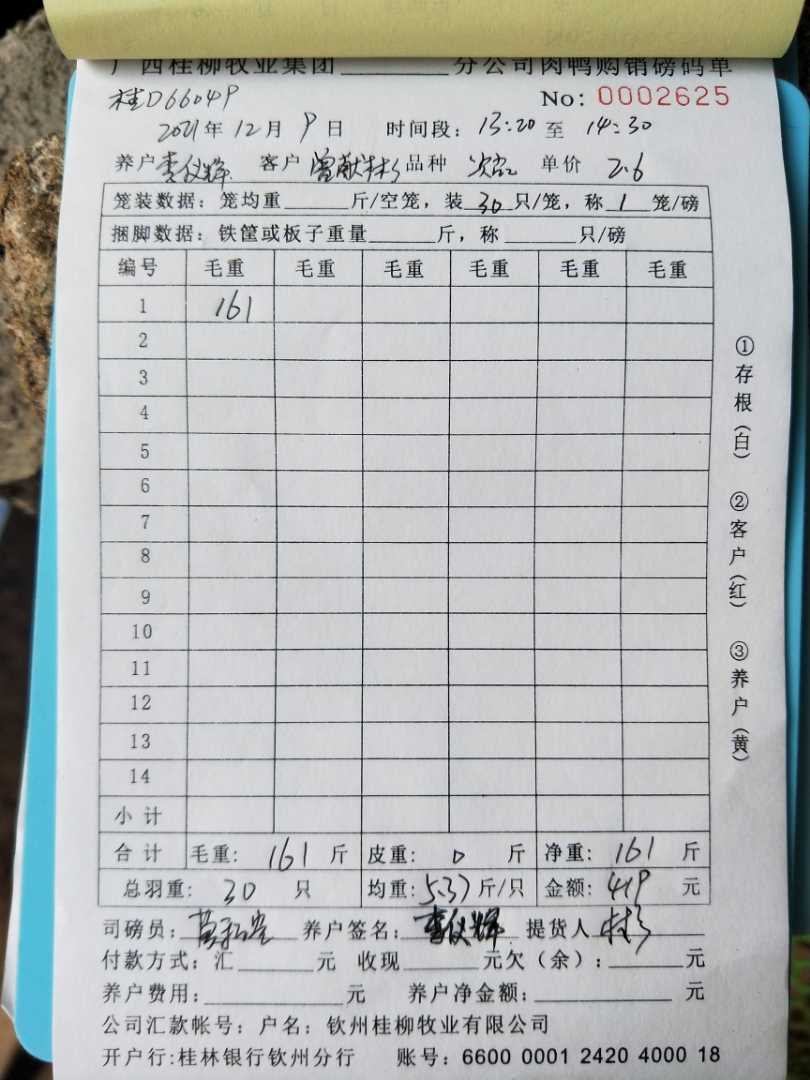 广西桂柳牧业集团________分公司肉鸭购销磅码单
桂D66049 No: 0002625
2021年12月9日 时间段: 13:20 至 14:30
养户李仪辉 客户曾献彬 品种 次品 单价 2.6
笼装数据: 笼均重______斤/空笼, 装30只/笼, 称1笼/磅
捆脚数据: 铁筐或板子重量______斤, 称______只/磅
编号 毛重 毛重 毛重 毛重 毛重 毛重
1 161
2
3
4
5
6
7
8
9
10
11
12
13
14
小计
合计 毛重: 161 斤 皮重: 0 斤 净重: 161 斤
总羽重: 30 只 均重: 5.37斤/只 金额: 419 元
司磅员: 养户签名: 李仪辉 提货人
付款方式: 汇______元 收现______元欠(余): ______元
养户费用: ______元 养户净金额: ______元
公司汇款帐号: 户名: 钦州桂柳牧业有限公司
开户行:桂林银行钦州分行 账号: 6600 0001 2420 4000 18
①存根(白) ②客户(红) ③养户(黄)